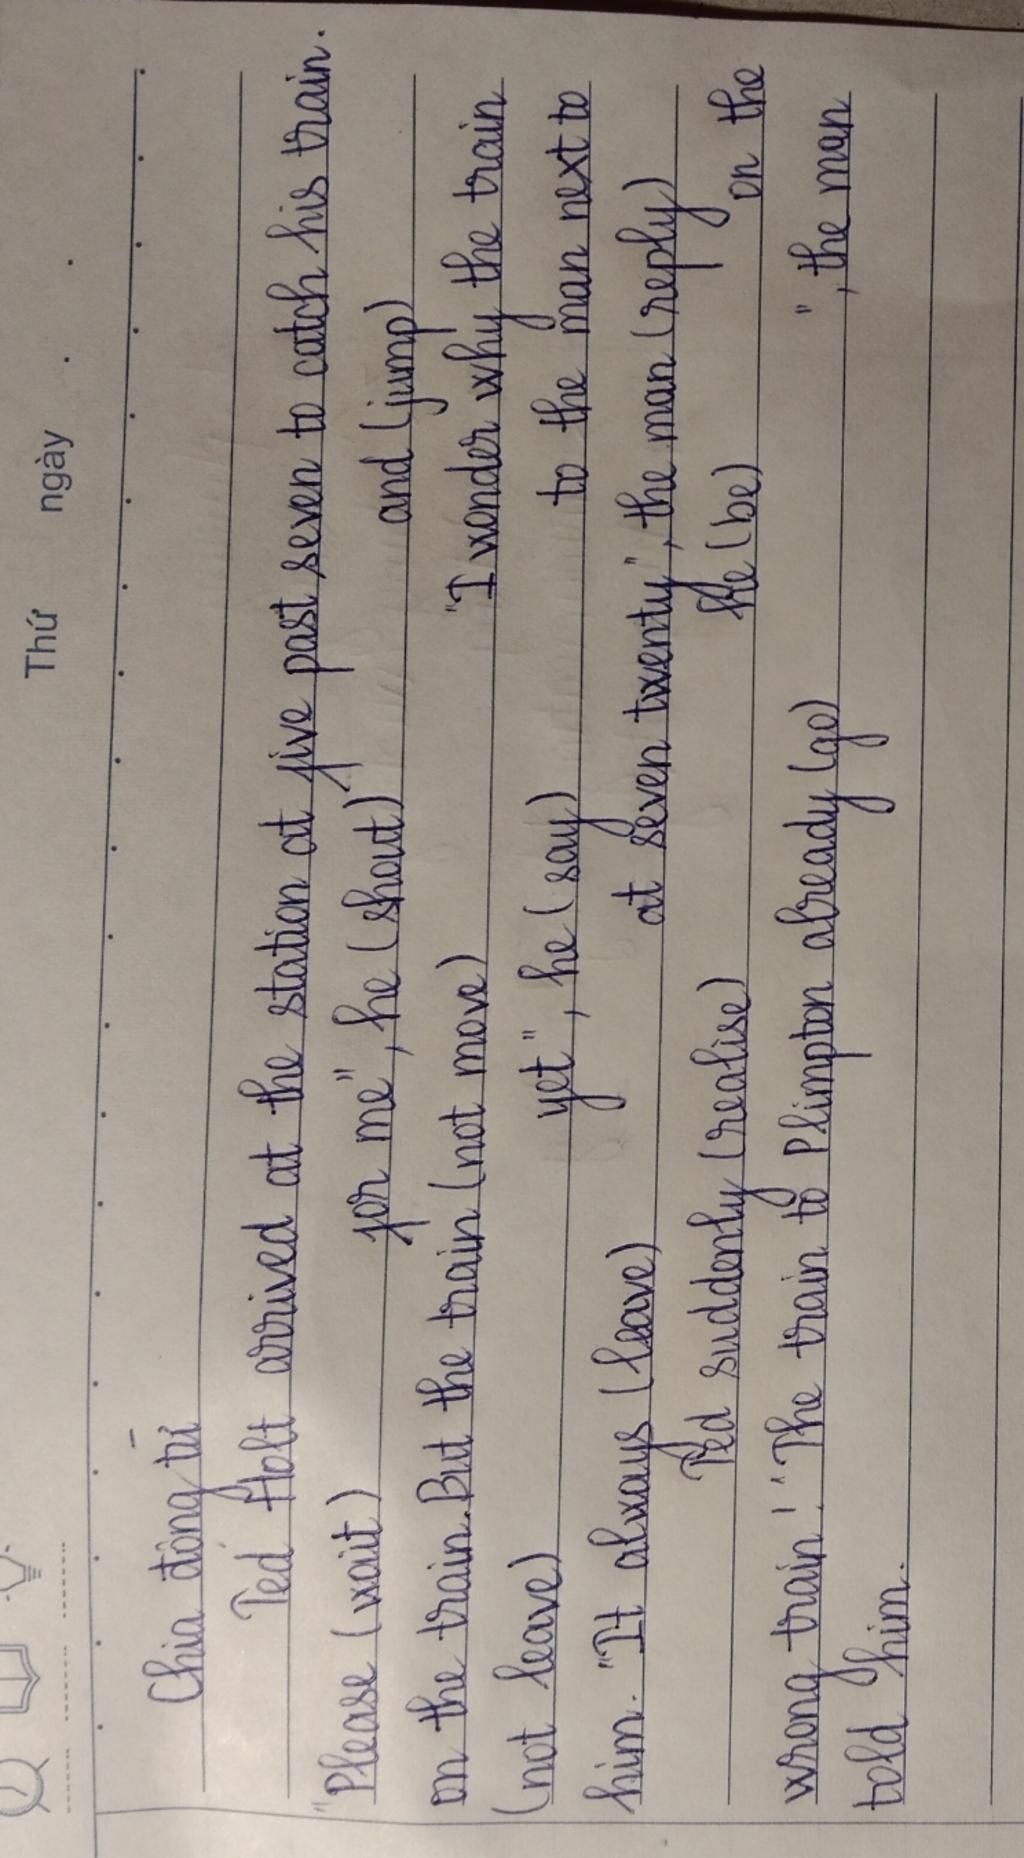 Thứ ngày
Chia động từ
Ted Holt arrived at the station at five past seven to catch his train.
"Please (wait) for me", he (shout) and (jump)
on the train. But the train (not move) "I wonder why the train
(not leave) yet", he (say) to the man next to
him. "It always (leave) at seven twenty", the man (reply)
Ted suddenly (realise) he (be) on the
wrong train! "The train to Plimpton already (go) ", the man
told him.